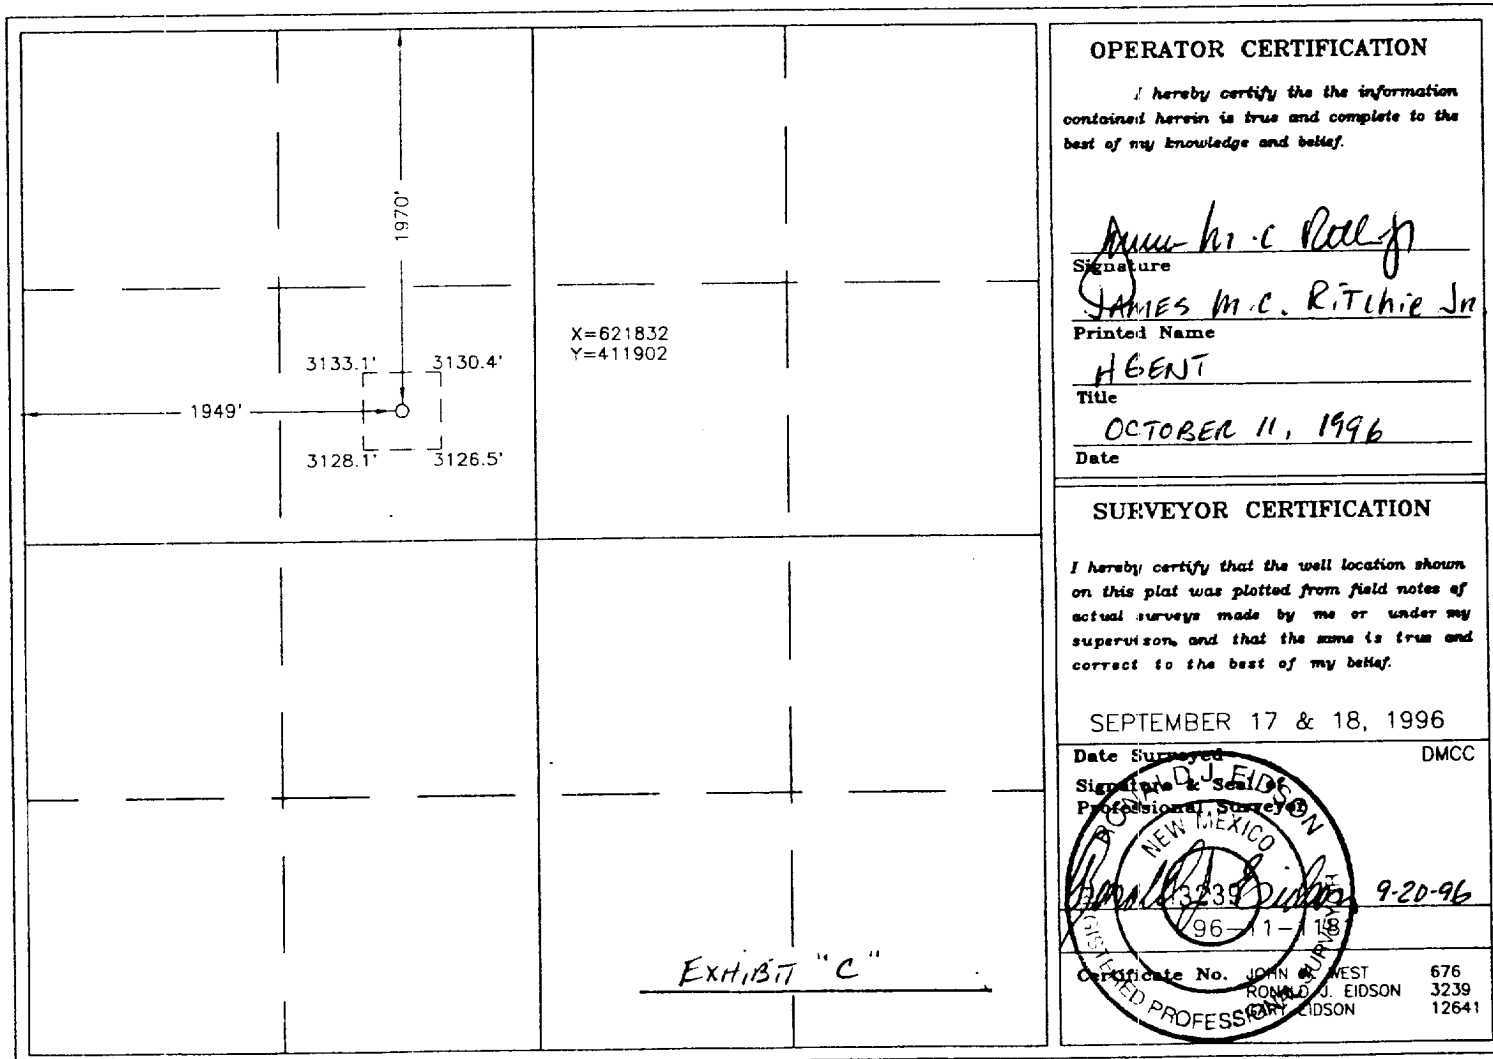 1970'
X=621832
Y=411902
3133.1' 3130.4'
1949'
3128.1' 3126.5'
EXHIBIT "C"
OPERATOR CERTIFICATION
I hereby certify the the information
contained herein is true and complete to the
best of my knowledge and belief.
Signature
JAMES M.C. RiTchie Jr
Printed Name
AGENT
Title
OCTOBER 11, 1996
Date
SURVEYOR CERTIFICATION
I hereby certify that the well location shown
on this plat was plotted from field notes of
actual surveys made by me or under my
supervison, and that the same is true and
correct to the best of my belief.
SEPTEMBER 17 & 18, 1996
Date Surveyed DMCC
Signature & Seal of
Professional Surveyor
RONALD J. EIDSON
NEW MEXICO
3239
REGISTERED PROFESSIONAL SURVEYOR
9-20-96
96-11-1181
Certificate No. JOHN W. WEST 676
RONALD J. EIDSON 3239
GARY EIDSON 12641